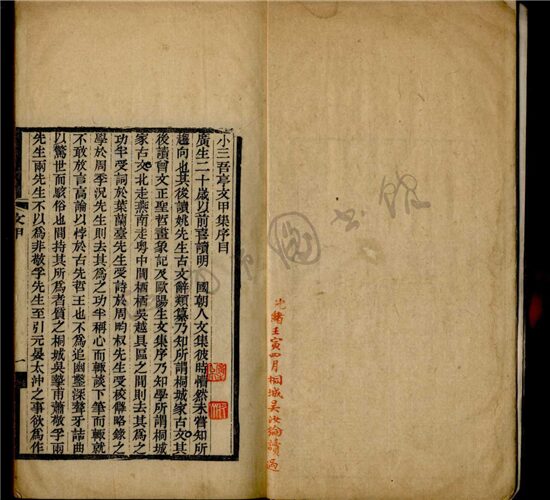 光緒壬寅四月桐城吳汝綸讀過
小三吾亭文甲集序目
廣生二十歲以前喜讀明　國朝人文集彼時懵然未嘗知所
趨向也其後讀姚先生古文辭類纂乃知所謂桐城家古文其
後讀曾文正聖哲畫象記及歐陽生文集序乃知學所謂桐城
家古文北走燕南走粤中間栖栖吳越具區之間則去其為之
功半受詞於葉蘭臺先生受詩於周畇叔先生受稜儺略錄之
學於周季況先生則去其為之功半稱心而輒談下筆而輒就
不敢放言高論以悖於古先哲王也不為追幽鑿深聱牙詰曲
以驚世而駭俗也間持其所為者質之桐城吳摯甫蕭敬孚兩
先生兩先生不以為非敬孚先生至引元晏太沖之事欲為作
文甲
一